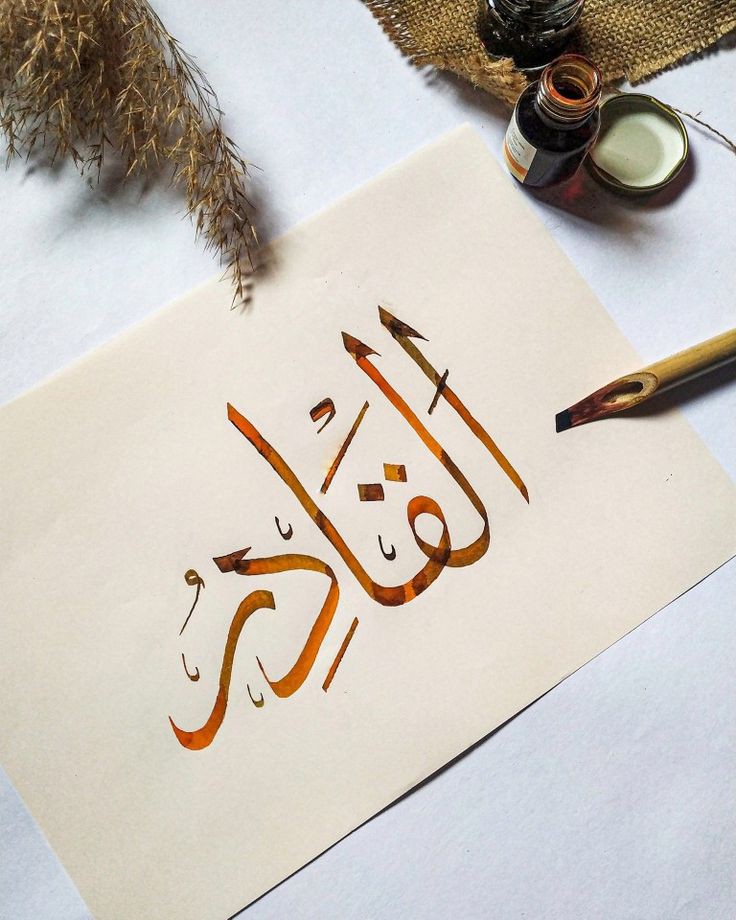 القَادِرُ